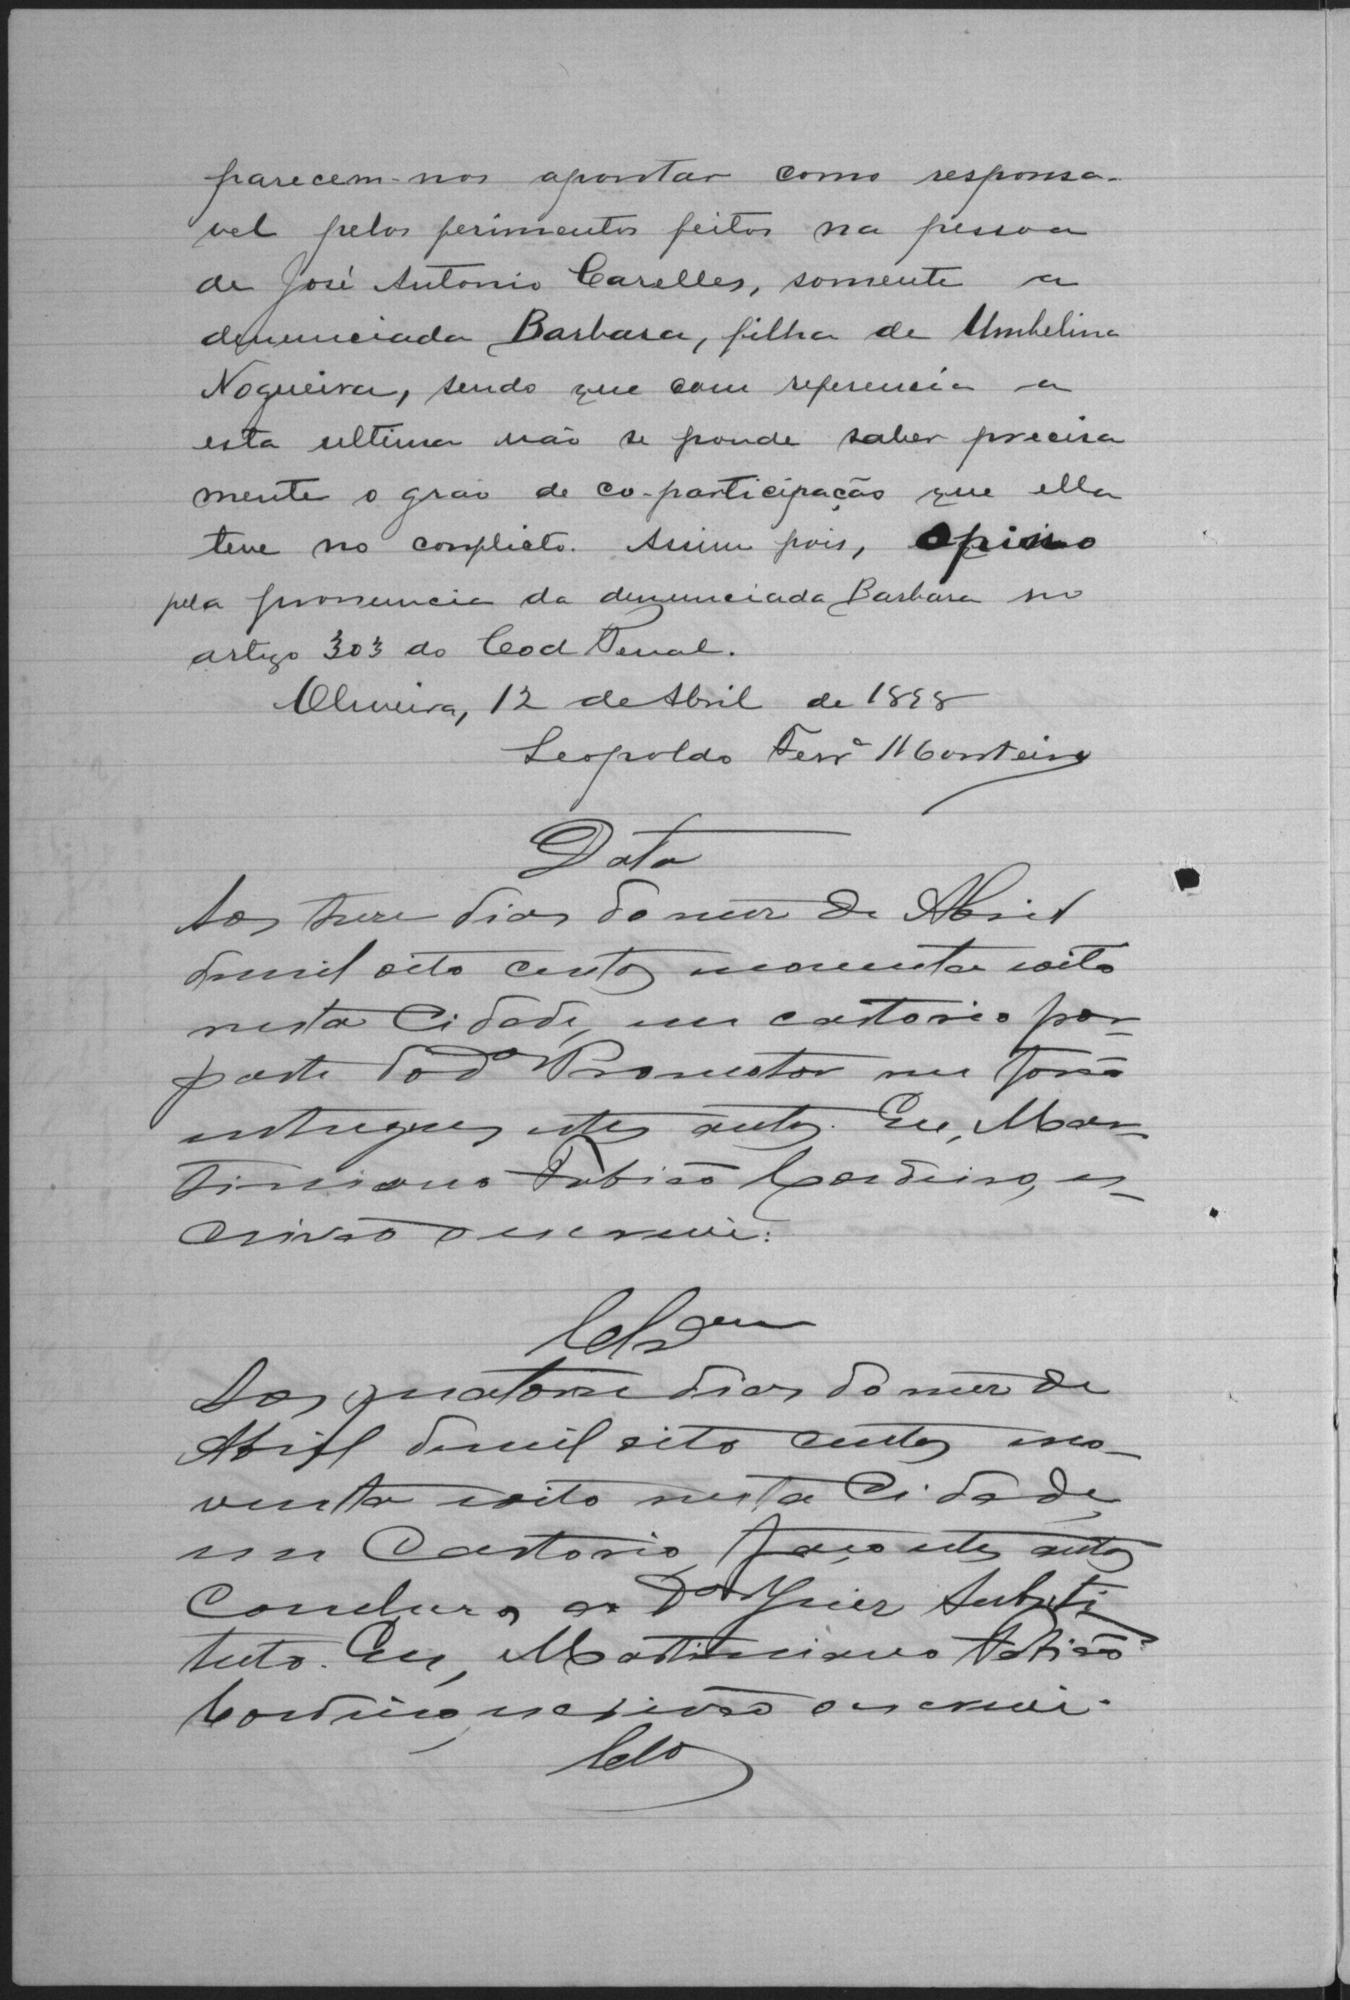 parecem-nos apontar como responsa-
vel pelos ferimentos feitos na pessoa
de José Antonio Carelles, somente a
denunciada Barbara, filha de Umbelina
Nogueira, sendo que com referencia a
esta ultima não se poude saber precisa
mente o grao de co-participação que ella
teve no conflicto. Assim pois, opino
pela pronuncia da denunciada Barbara no
artigo 303 do Cod Penal.
Oliveira, 12 de Abril de 1898
Leopoldo Ferrª Monteiro
Data
Aos treze dias do mez de Abril
de mil oito centos noventa e oito
nesta Cidade, em cartorio por
parte do dor Promotor me forão
entregues estes autos. Eu, Mar-
timiano Fabião Cordeiro, es-
crivão o escrevi.
Clsam
Aos quatorze dias do mez de
Abril de mil oito centos no-
venta e oito nesta Cidade,
em Cartorio, faço estes autos
Concluzos ao Dor Juiz Substi
tuto. Eu, Martimiano Fabião
Cordeiro, escrivão o escrevi.
Clo